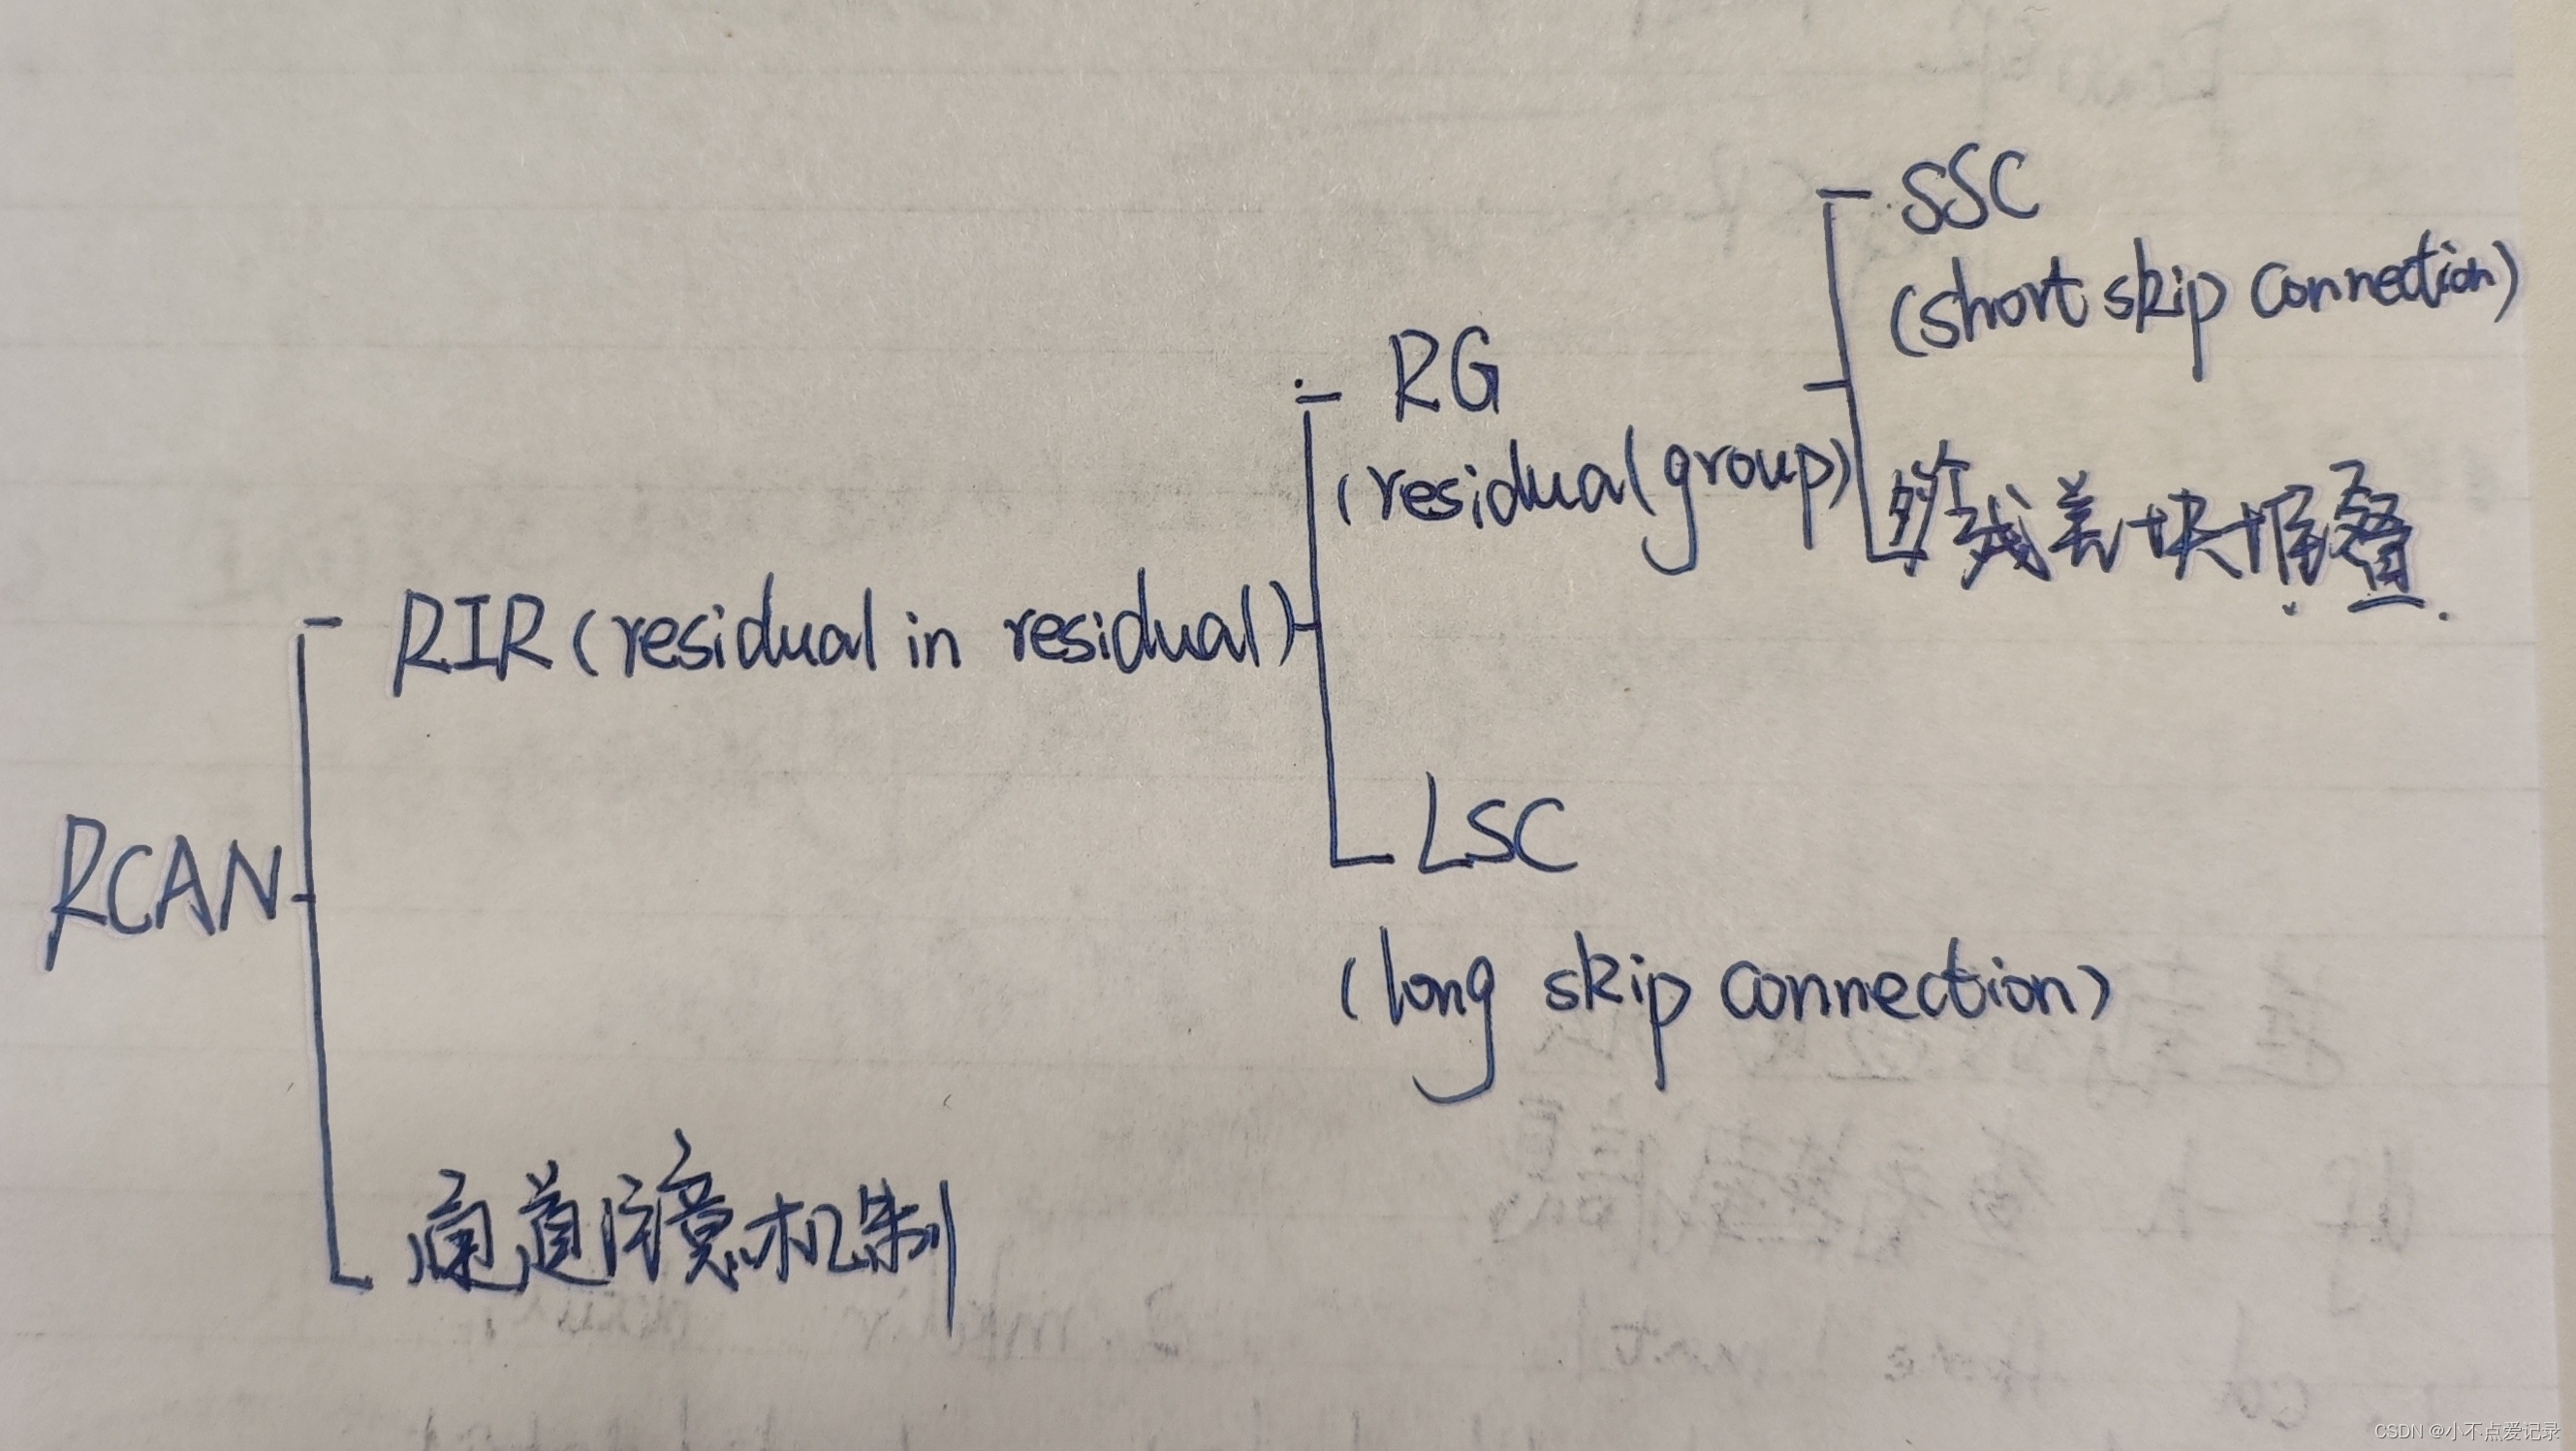 SSC
(short skip connection)
RG
(residual group)
多个残差块堆叠.
RIR (residual in residual)
LSC
RCAN
(long skip connection)
通道注意机制
CSDN @小不点爱记录